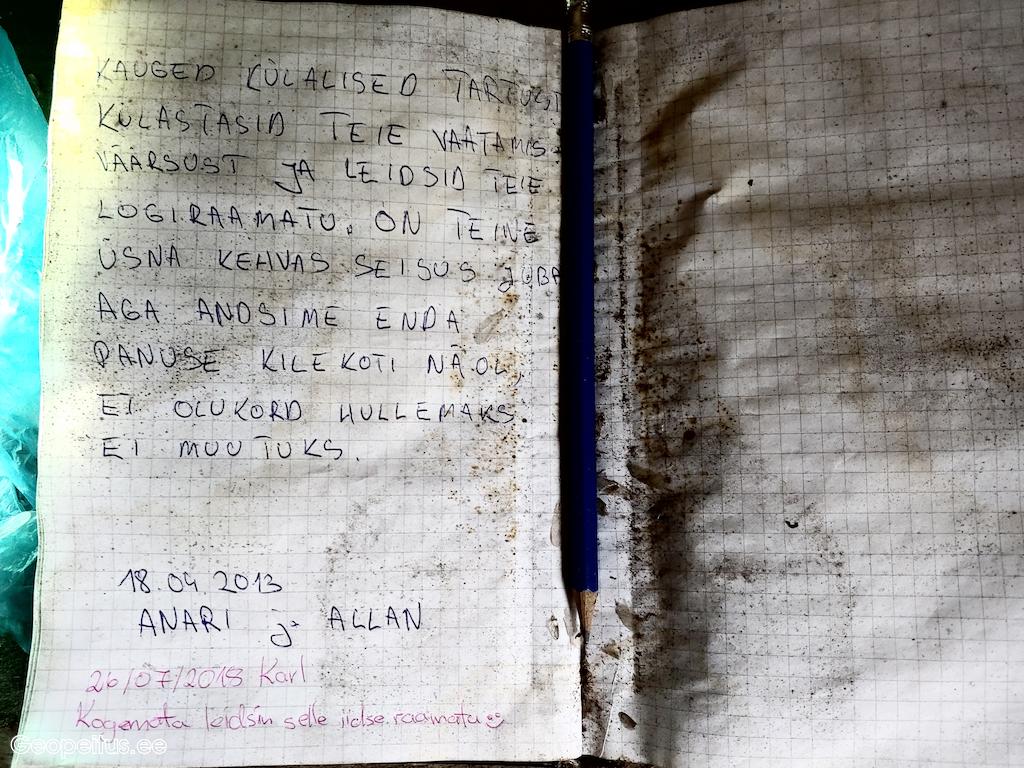 KAUGED KÜLALISED TARTUST
KÜLASTASID TEIE VAATAMIS-
VÄÄRSUST JA LEIDSID TEIE
LOGIRAAMATU. ON TEINE
ÜSNA KEHVAS SEISUS JUBA
AGA ANDSIME ENDA
PANUSE KILEKOTI NÄOL,
ET OLUKORD HULLEMAKS
EI MUUTUKS.
18.04.2013
ANARI ja ALLAN
26/07/2018 Karl
Kogemata leidsin selle iidse raamatu
Geopeitus.ee